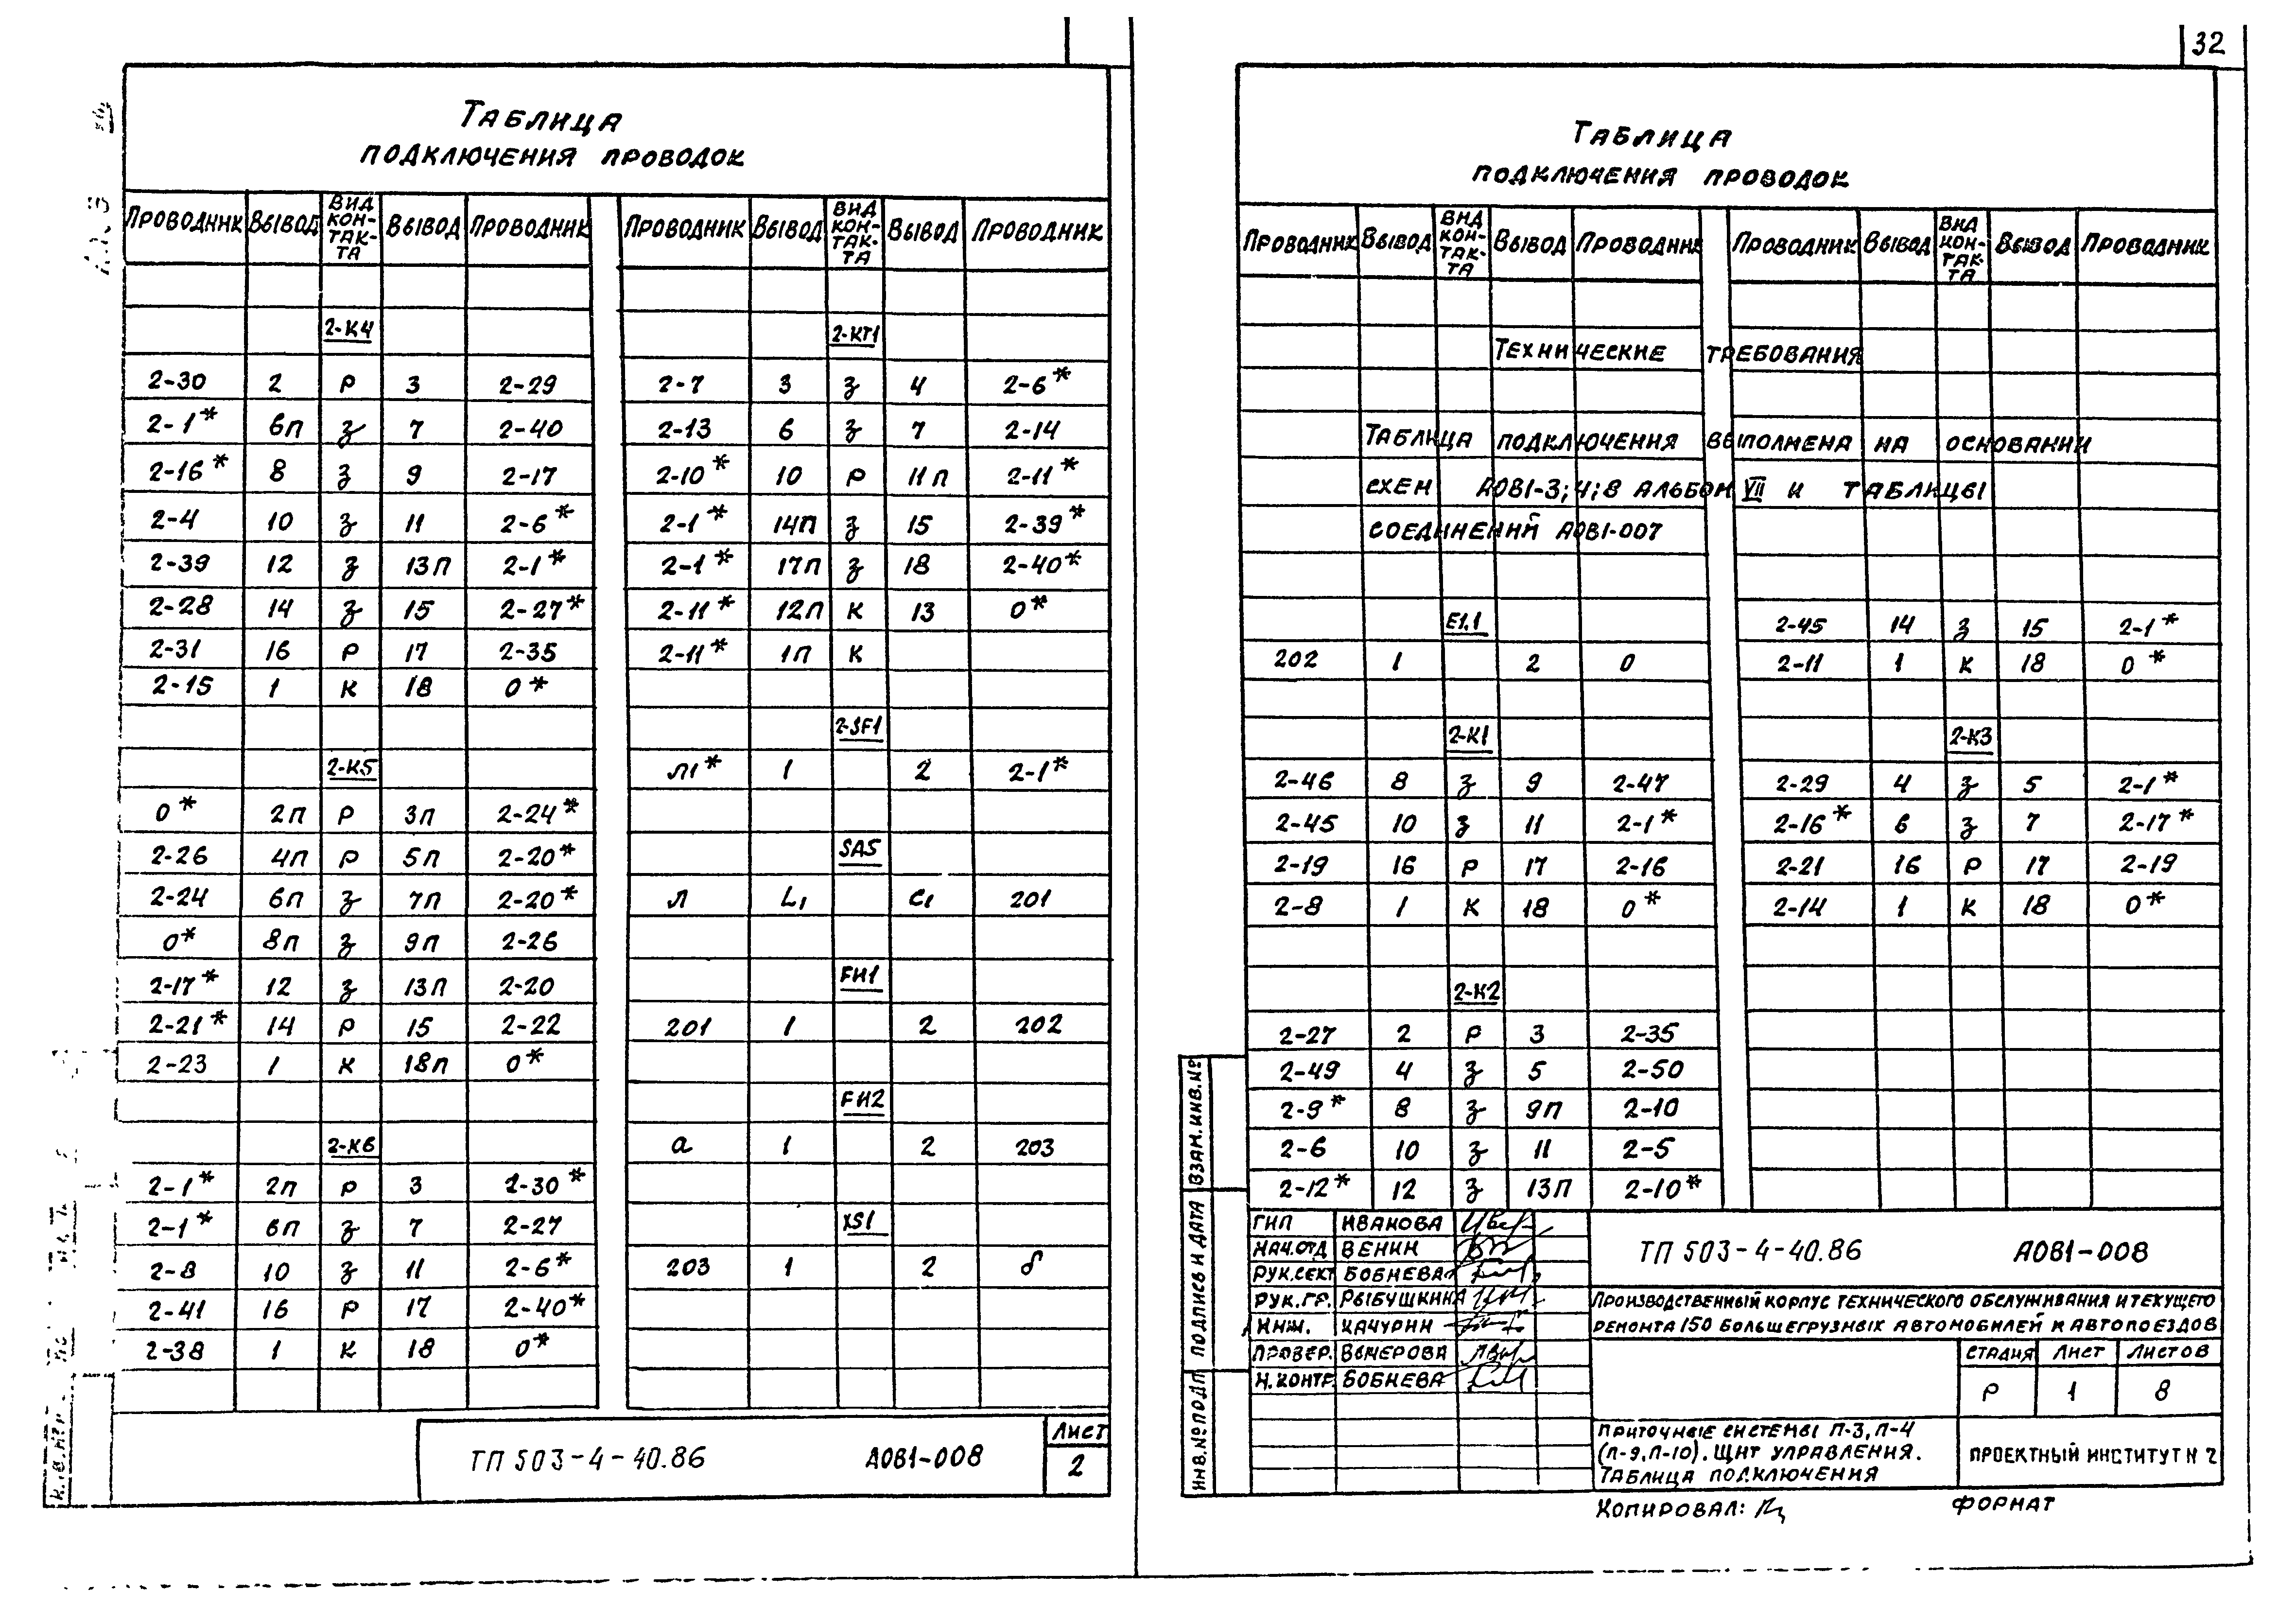 32
Таблица
подключения проводок
Проводник Вывод Вид контакта Вывод Проводник
2-К4
2-30 2 Р 3 2-29
2-1* 6П З 7 2-40
2-16* 8 З 9 2-17
2-4 10 З 11 2-6*
2-39 12 З 13П 2-1*
2-28 14 З 15 2-27*
2-31 16 Р 17 2-35
2-15 1 К 18 0*
2-К5
0* 2П Р 3П 2-24*
2-26 4П Р 5П 2-20*
2-24 6П З 7П 2-20*
0* 8П З 9П 2-26
2-17* 12 З 13П 2-20
2-21* 14 Р 15 2-22
2-23 1 К 18П 0*
2-К6
2-1* 2П Р 3 2-30*
2-1* 6П З 7 2-27
2-8 10 З 11 2-6*
2-41 16 Р 17 2-40*
2-38 1 К 18 0*
Проводник Вывод Вид контакта Вывод Проводник
2-КТ1
2-7 3 З 4 2-6*
2-13 6 З 7 2-14
2-10* 10 Р 11П 2-11*
2-1* 14П З 15 2-39*
2-1* 17П З 18 2-40*
2-11* 12П К 13 0*
2-11* 1П К
2-SF1
Л1* 1 2 2-1*
SA5
Л L1 C1 201
FИ1
201 1 2 202
FИ2
а 1 2 203
XS1
203 1 2 б
ТП 503-4-40.86 А0В1-008
Лист
2
Таблица
подключения проводок
Проводник Вывод Вид контакта Вывод Проводник
Проводник Вывод Вид контакта Вывод Проводник
Технические требования
Таблица подключения выполнена на основании
схем А0В1-3;4;8 альбом VII и таблицы
соединений А0В1-007
Е1.1
202 1 2 0
2-К1
2-46 8 З 9 2-47
2-45 10 З 11 2-1*
2-19 16 Р 17 2-16
2-8 1 К 18 0*
2-К2
2-27 2 Р 3 2-35
2-49 4 З 5 2-50
2-9* 8 З 9П 2-10
2-6 10 З 11 2-5
2-12* 12 З 13П 2-10*
2-45 14 З 15 2-1*
2-11 1 К 18 0*
2-К3
2-29 4 З 5 2-1*
2-16* 6 З 7 2-17*
2-21 16 Р 17 2-19
2-14 1 К 18 0*
Взам.инв.№
Подпись и дата
Инв.№ подл
ГИП Иванова
Нач.отд Венин
Рук.сект Бобнева
Рук.гр. Рыбушкина
Инж. Качурин
Провер. Вычерова
Н.контр Бобнева
ТП 503-4-40.86 А0В1-008
Производственный корпус технического обслуживания и текущего
ремонта 150 большегрузных автомобилей и автопоездов
Стадия Лист Листов
Р 1 8
Приточные системы П-3, П-4
(П-9,П-10). Щит управления.
Таблица подключения
Проектный институт N 2
Копировал:
Формат